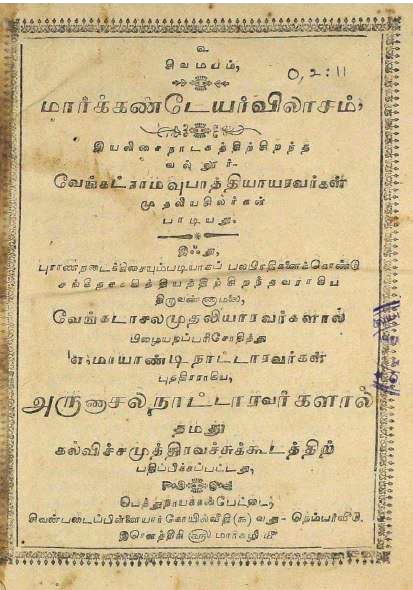 உ
சிவமயம்,
0, 2 : 11
மார்க்கண்டேயர்விலாசம்,
இயலிசைநாடகத்திற்சிறந்த
வல்லூர்-
வேங்கடராமவுபாத்தியாயரவர்கள்
முதலியபுலவர்கள்
பாடியது.
இஃது,
புராணநடைக்கிசையும்படியாகப் பலபிரதிகளைக்கொண்டு
சங்கீதசாகித்தியத்திற்சிறந்தவராகிய
திருவண்ணாமலை,
வேங்கடாசலமுதலியாரவர்களால்
பிழையறப்பரிசோதித்து
மாயாண்டிநாட்டாரவர்கள்
புத்திரராகிய,
அருணாசலநாட்டாரவர்களால்
தமது
கல்விச்சமுத்திரவச்சுக்கூடத்திற்
பதிப்பிக்கப்பட்டது,
பெத்துநாயக்கன்பேட்டை,
வெண்படைப்பிள்ளையார்கோயில்வீதி (௩) வது - நெம்பர்வீடு.
மார்கழி மீ